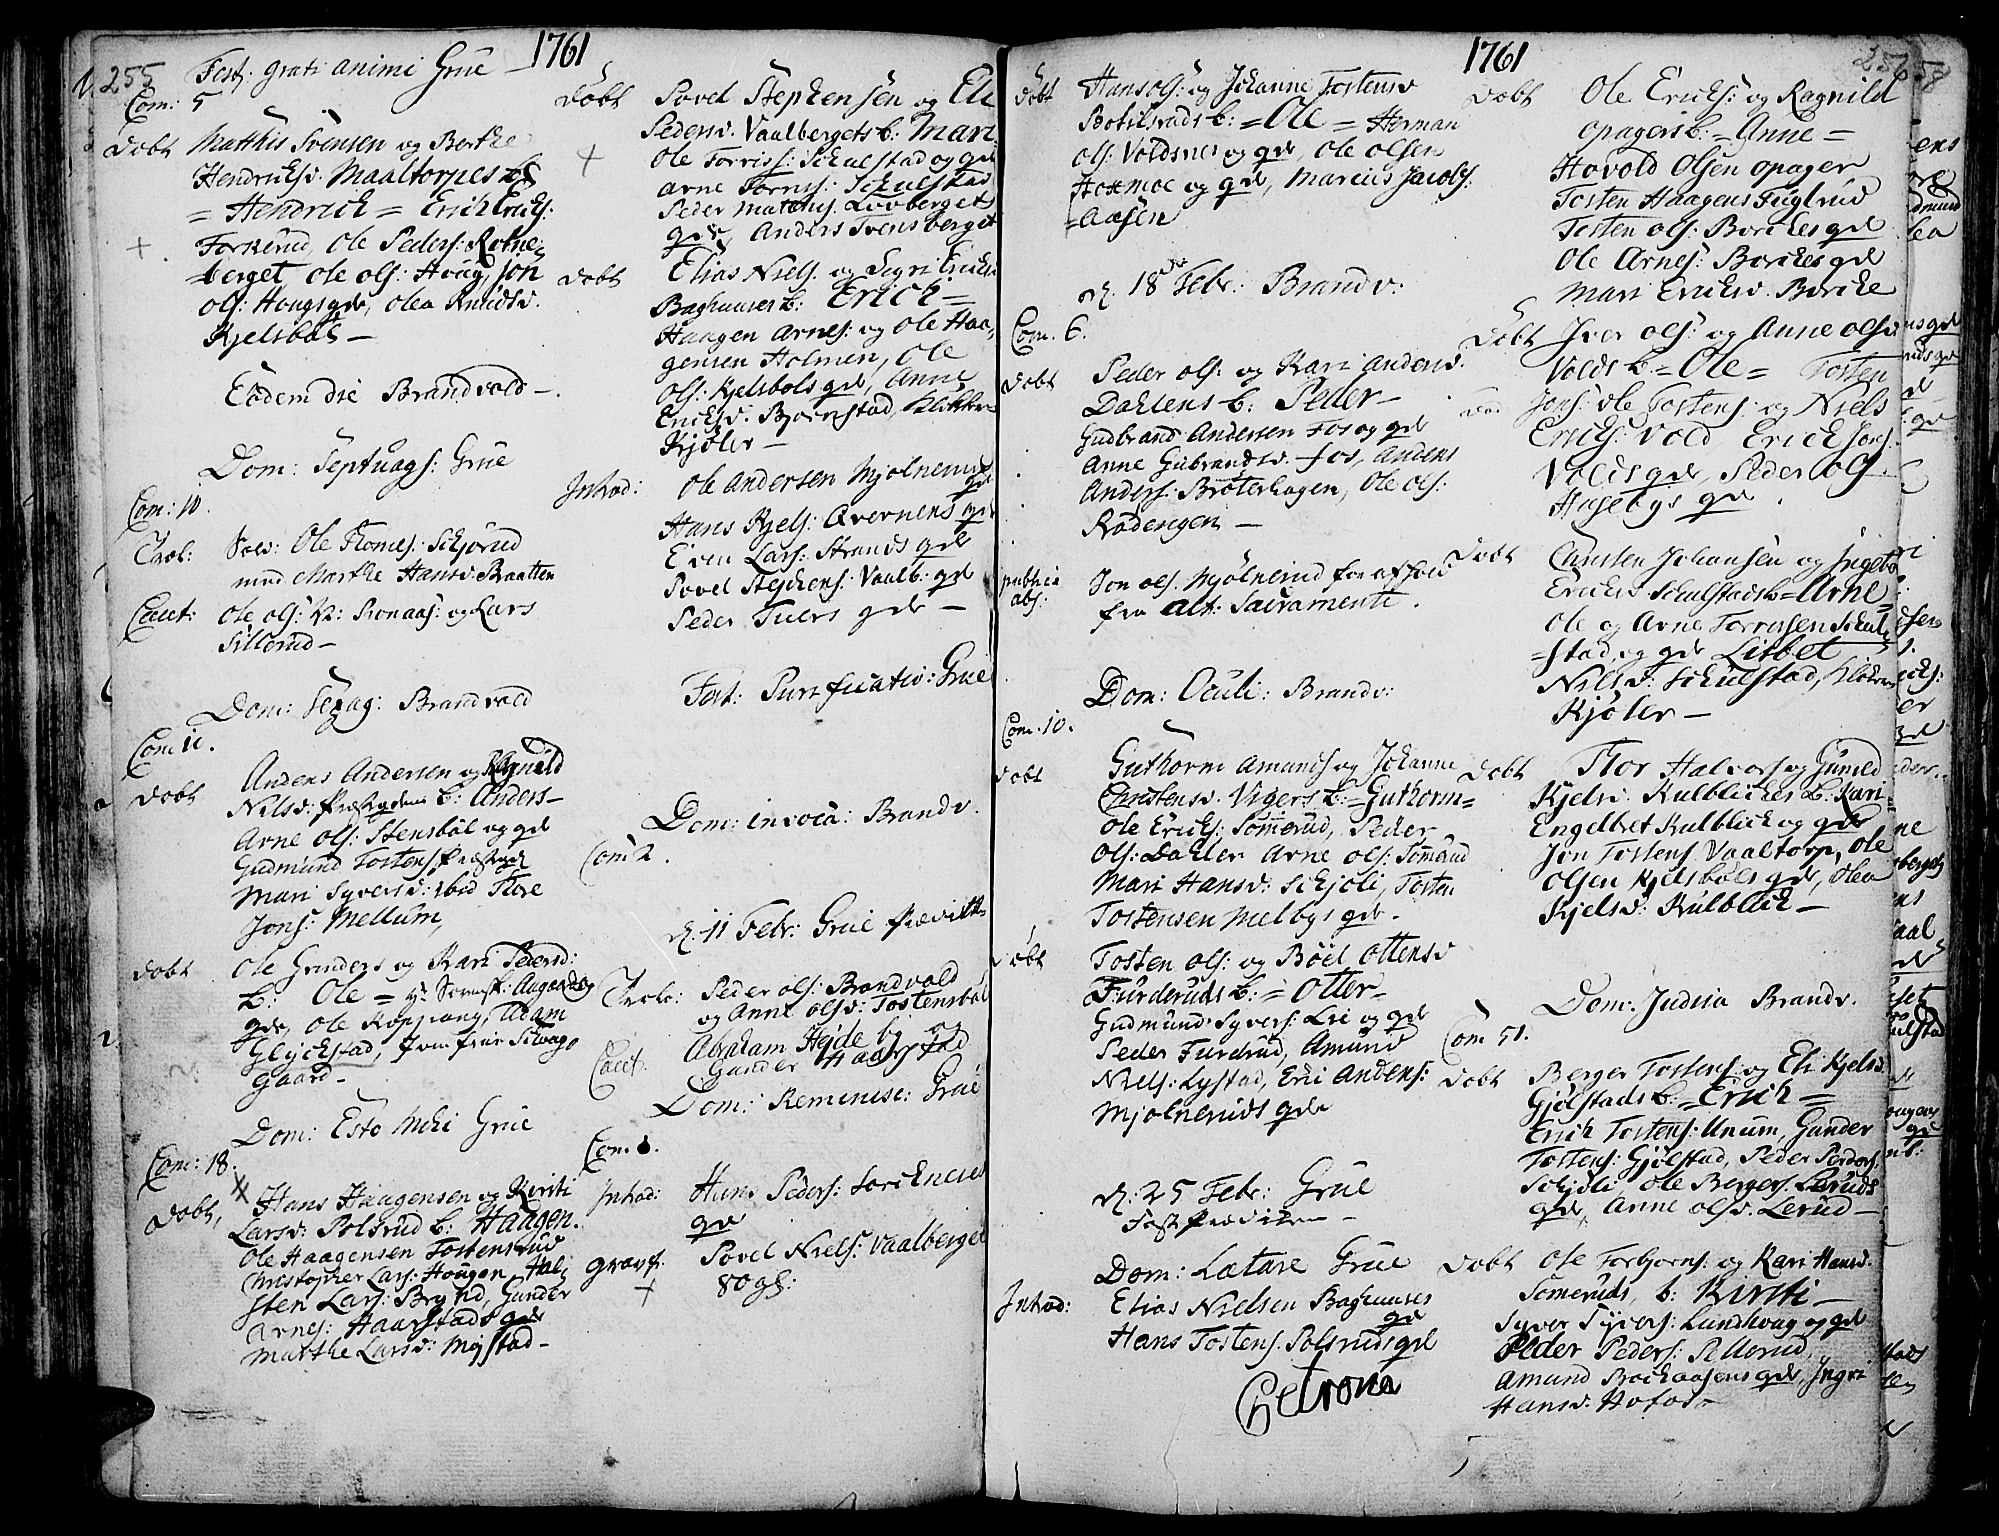 255 Fest: grati animi Grue 1761
Com: 5
Døbt Matthis Svensen og Berthe
Hendricksd. Maaltorpes b.
= Hendrich = Erich Ericks:
Torkerud, Ole Peders: Rotne
berget ole ols: Houg, Jon
ols: Hougs gde, olea Knudsd.
Kjelsbøl —
Eodem die Brandvold —.
Dom: Septuags: Grue
Com: 10.
Trol: Solv: Ole Thomes: Schjørud
med Marthe Hansd. Braatten
Caut: Ole ols: N: Ronaas: og Lars
Sillerud —
Dom: Sexag: Brandvold
Com 11.
Døbt Anders Andersen og Ragnild
Nilsd: Præstgdens b: Anders —
Arne ols: Stensbøl og gde
Gudmund Tostens Præstgde
Mari Syversd: ibid Tore
Jons: Mellum,
Døbt Ole Gunders og Kari Pedersd:
b: Ole =
gde, Ole Kopperang, Adam
Glyckstad, Jomfrue
Gaard —
Dom: Esto Mihi Grue
Com: 18.
Døbt, Hans Haagensen og Kirsti
Larsd: Polsrud b: Haagen.
Ole Haagensen Tostensrud
Christopher Lars: Hougen, Hal,
sten Lars: Brynd, Gunder
Arnes: Haarstads gde
Marthe Larsd: Mystad —
Døbt Povel Stephensen og Eli
Pedersd. Vaalbergets b: Mari
Ole Torriss: Schulstad og gde
Arne Torris: Schulstad
Peder Mathis: Lovberget
gde, Anders Svensberget
Døbt Elias Niels. og Sigri Ericksd
Baghuuses b: Erich =
Haagen Arnes: og Ole Haa,
gensen Holmen, Ole
Ols: Kjelsbøls gde, Anne
Ericksd. Bjørnstad, Klokker
Kjøler —
Introd: Ole Andersen Mjølnerud
gde
Hans Kjels: Avernens gde
Even Lars: Strands gde
Povel Stephens: Vaalb: gde
Peder Tuers gde —
Fest: Purificatio: Grue
Dom: invoca: Brandv.
Com 2.
d. 11 Febr: Grue
Trolo: Peder ols: Brandvold
og Anne olsd: Tostensbøl
Caut. Abraham Hejde by og
Gunder Haarstad
Dom: Reminisc: Grue
Com
Introd: Hans Peders:
gde
gravf. Povel Niels: Vaalberget
80 gl:
1761
Døbt Hans ols: og Johanne Tostensd
Botilsruds b: = Ole = Herman
ols: Voldsnes og gde, Ole Olsen
Hokmoe og gde, Marcus Jacobs:
= Aasen
d. 18 Febr: Brandv:
Com. 6.
Døbt Peder ols: og Kari Andersd.
Dahlens b: Peder —
Gudbrand Andersen Fos og gde
Anne Gubrandsd. Fos, Anders
Anders: Brøterhagen, Ole ols:
Rødengen —
publicè
abs: Jon ols. Mjølnerud for afhold
fra Alt: Sacramenti.
Dom: Oculi: Brandv:
Com. 10.
Døbt Guthorm Amunds og Johanne
Christensd. Vigers b: = Guthorm =
Ole Ericks: Sømerud, Peder
Ols: Dahler Arne Ols: Sømerud
Mari Hansd: Schjøli, Tosten
Tostensen Melbys gde.
Døbt Tosten ols: og Bøel Ottensd
Furderuds b: = Otter =
Gudmund Syvers: Lie og gde
Peder Furdrud, Amund
Niels: Lystad, Eric Anders:
Mjølneruds gde
d: 25 Febr: Grue
Dom: Lætare Grue
Introd: Elias Nielsen Baghuuses
gde
Hans Tostens. Polsruds gde
Petrona
Døbt Ole Ericks: og Ragnild
opagers b: = Anne =
Hovold Olsen opager
Tosten Haagens Fuglrud
Tosten ols: Borches gde
Ole Arnes: Borches gde
Mari Ericksd. Borche
Døbt Iver ols: og Anne olsd
Volds b = Ole = Tosten
Jons: Ole Tostens: og Niels
Ericks: Vold Erick Jons.
Volds gde, Peder Ols.
Husebys gde.
Døbt Christen Johansen og Ingebo
Ericksd Schulstads b = Arne =
Ole og Arne Torrissen Schul,
= stad, og gde Lisbet
Nilsd: Schulstad, Klokker
Kjøler —
Døbt Thor Halvors og Gunild
Kjelsd. Kulblicks b: Kari =
Engelbret Kulblick og gde
Jon Tostens. Vaaltorp, Ole
Olsen Kjelsbøls gde, Olea
Kjelsd: Kulblick —
Dom: Judica Brandv.
Com 51.
Døbt Berger Tostens: og Eli Kjelsd.
Gjølstads b: = Erich =
Erich Tostens: Unum, Gunder
Tostens: Gjølstad, Peder Peders,
Schjøli Ole Bergers. Leruds
gde, Anne olsd. Lerud —
Døbt Ole Torbjørns: og Kari Hansd.
Sømeruds, b: Kirsti —
Syver Syvers: Lundhoug og gde
Peder Peders: Pellerud,
Amund Bochaasens gde, Ingri
Hansd: Hofoed —